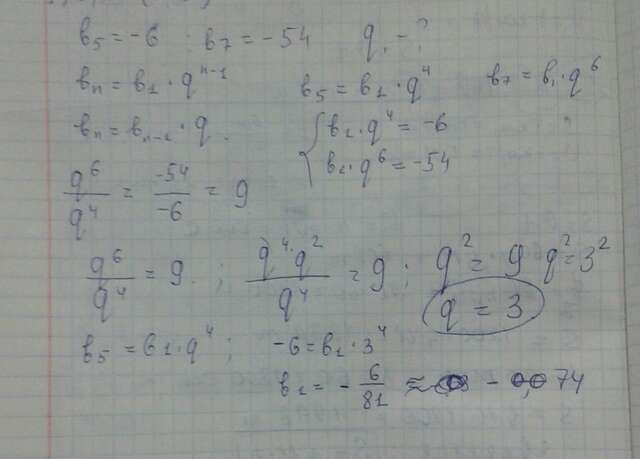 b₅ = -6 b₇ = -54 q - ?
bₙ = b₁ · qⁿ⁻¹ b₅ = b₁ · q⁴ b₇ = b₁ · q⁶
bₙ = bₙ₋₁ · q. { b₁ · q⁴ = -6
b₁ · q⁶ = -54
q⁶/q⁴ = -54/-6 = 9
q⁶/q⁴ = 9 ; q⁴·q²/q⁴ = 9 ; q² = 9 q² = 3²
q = 3
b₅ = b₁ · q⁴ ; -6 = b₁ · 3⁴
b₁ = - 6/81 ≈ - 0,074